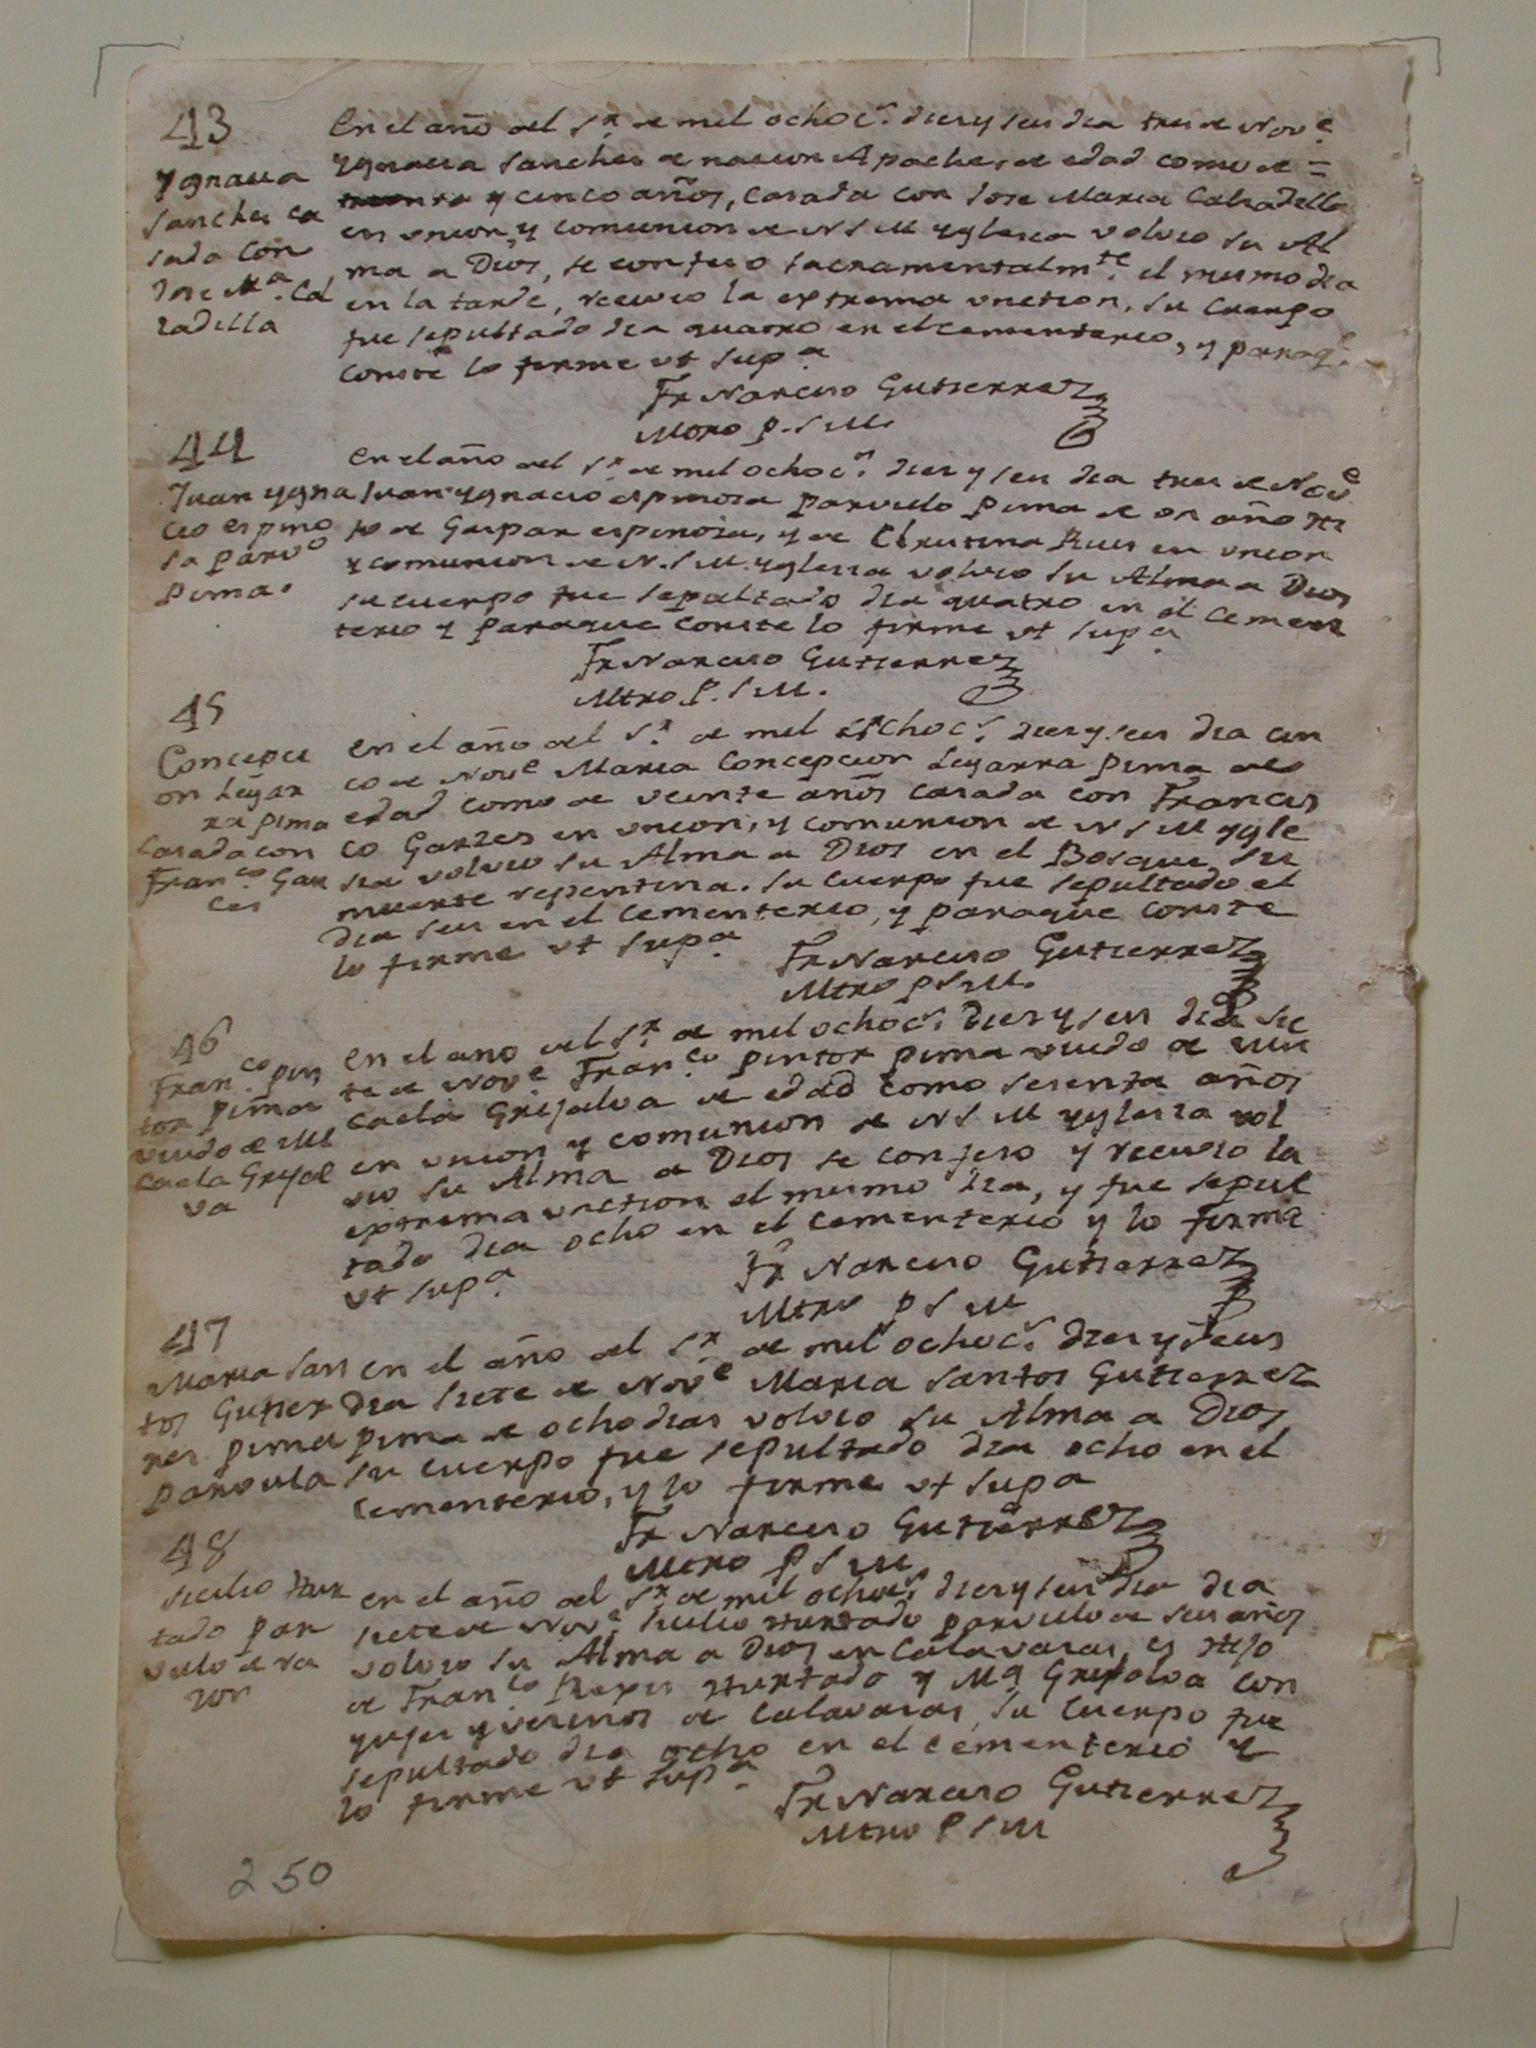 43
Ygnacia
Sanches ca
sada con
Jose Ma. Cal
zadilla
En el año del Sr. de mil ochocs. diez y seis dia tres de Nove
Ygnacia Sanches de nacion Apache, de edad como de =
treinta y cinco años, casada con Jose Maria Calzadilla
en union, y comunion de N S M Yglesia volvio su Al
ma a Dios, se confeso sacramentalmte. el mismo dia
en la tarde, recivio la extrema unction, su cuerpo
fue sepultado dia quatro en el cementerio, y paraqe.
conste lo firme ut supa
Fr Narciso Gutierrez
Mtro p. S M.
44
Juan Ygna
cio espino
sa parvo
Pima.
en el año del Sr. de mil ochocs. diez y seis dia tres de Nove.
Juan Ygnacio espinosa parvulo Pima de un año Hi
jo de Gaspar espinosa, y de Christina Ruis en union
y comunion de N. S M. Yglesia volvio su Alma a Dios
su cuerpo fue sepultado dia quatro en el Cemen
terio y paraque conste lo firme ut supa
Fr Narciso Gutierrez
Mtro P. S M.
45
Concepci
on Ligar
ra pima
casada con
Franco. Gar
ces
en el año del Sr. de mil ochocs. diez y seis dia cin
co de Nove Maria Concepcion Ligarra pima de
edad como de veinte años casada con Francis
co Garzes en union, y comunion de N S M Ygle
sia volvio su Alma a Dios en el Bosque su
muerte repentina. Su cuerpo fue sepultado el
dia seis en el cementerio, y paraque conste
lo firme ut supa.
Fr Narciso Gutierrez
Mtro P S M.
46
Franco. pin
tor pima
viudo de Mi
caela Grijal
va
en el año del Sr. de mil ochocs. diez y seis dia sie
te de Nove Franco. pintor pima viudo de Mi
caela Grijalva de edad como sesenta años
en union y comunion de N S M Yglesia vol
vio su Alma a Dios se confeso y recivio la
extrema unction el mismo dia, y fue sepul
tado dia ocho en el cementerio y lo firme
ut supa.
Fr Narciso Gutierrez
Mtro p S M
47
Maria San
tos Gutier
res pima
parvula
en el año del Sr. de mil ochocs. diez y seis
dia siete de Nove Maria Santos Gutierrez
pima de ocho dias volvio su Alma a Dios
su cuerpo fue sepultado dia ocho en el
cementerio, y lo firme ut supa
Fr Narciso Gutierrez
Mtro P S M
48
Hur
tado par
vulo de ra
zon
en el año del Sr. de mil ochocs. diez y seis dia dia
siete de Nove. Hurtado parvulo de seis años
volvio su Alma a Dios en Calavasas, es Hijo
de Franco. Hurtado y Ma Grijalva con
yuges y vecinos de Calavasas, su cuerpo fue
sepultado dia ocho en el cementerio y
lo firme ut supa.
Fr Narciso Gutierrez
Mtro P S M
250